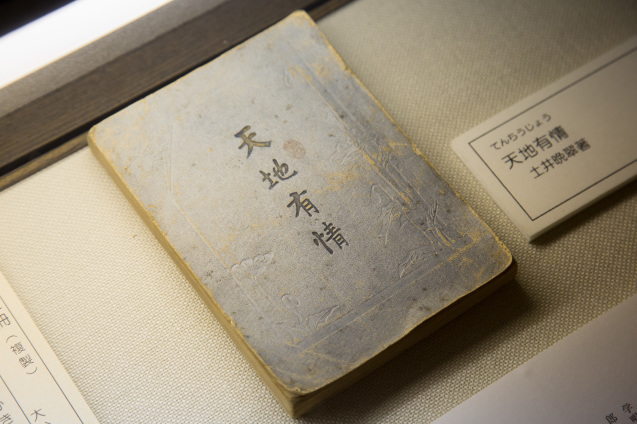 天地有情
てんちうじょう
天地有情
土井晩翠著
（複製）
大
学
郎